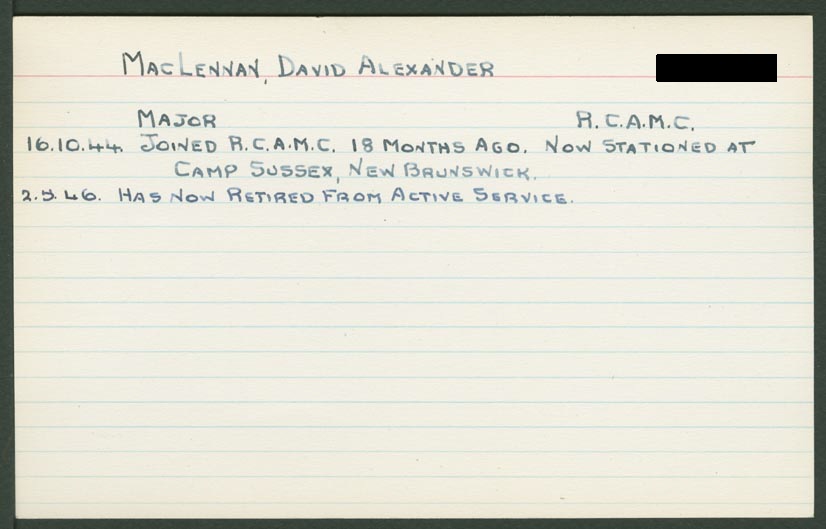 MacLennan, David Alexander
Major R.C.A.M.C.
16.10.44. Joined R.C.A.M.C. 18 months ago. Now stationed at
Camp Sussex, New Brunswick.
2.5.46. Has now retired from active service.